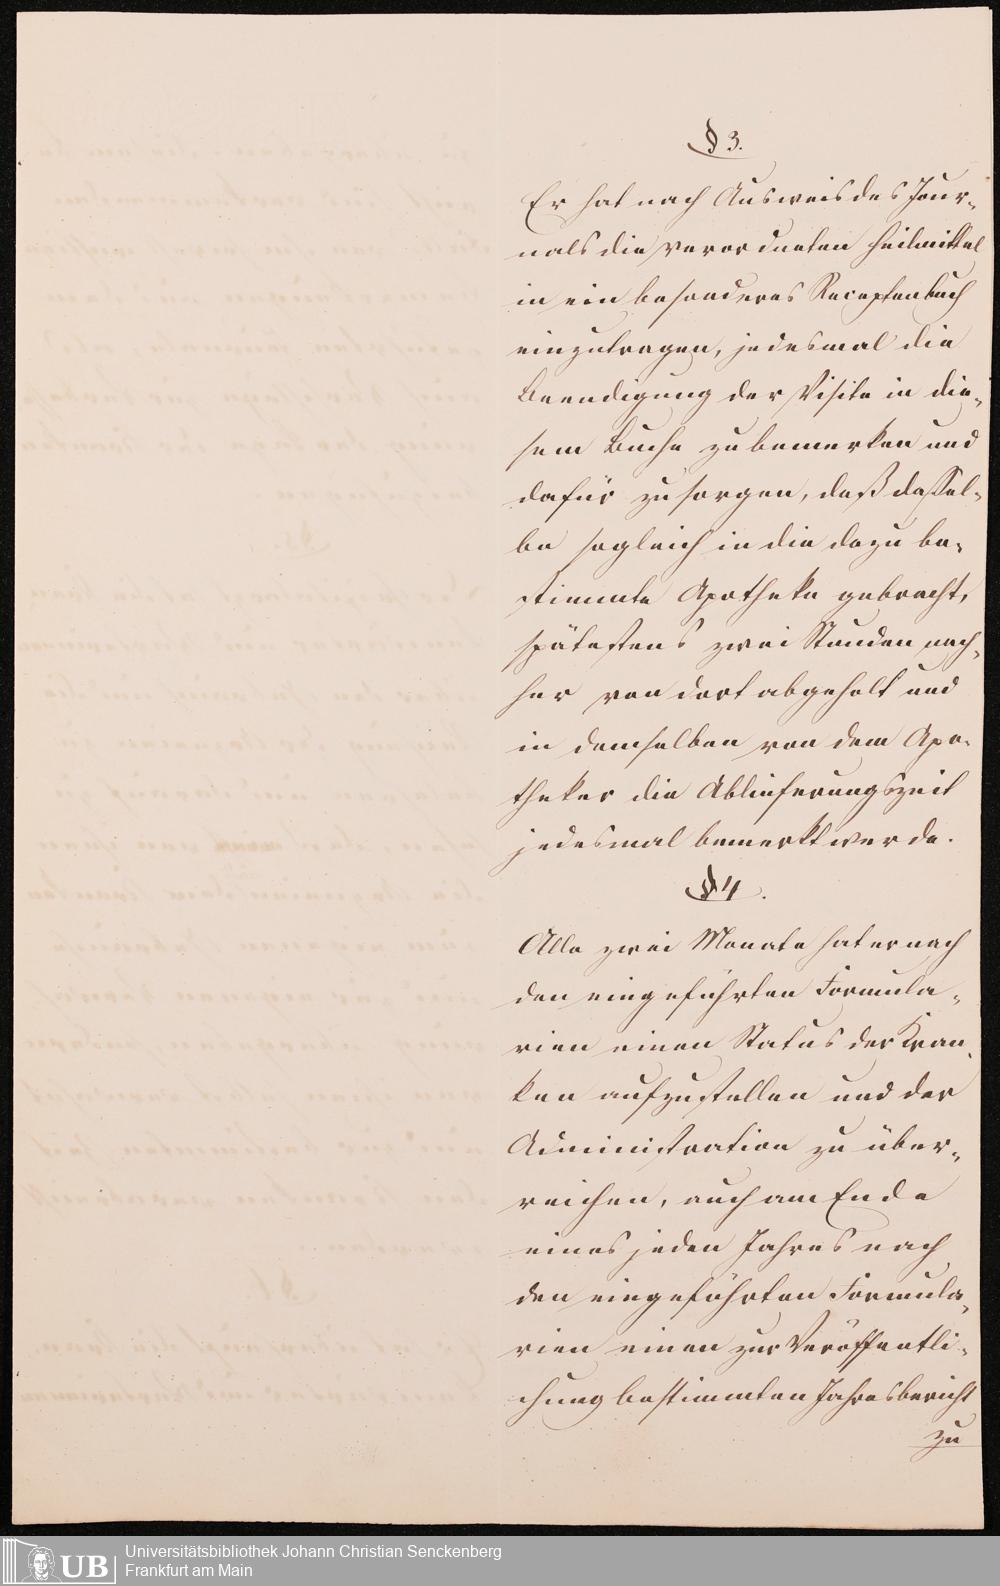 § 3.
Er hat nach Ausweis des Jour-
nals die verordneten Heilmittel
in ein besonderes Receptenbuch
einzutragen, jedesmal die
Beendigung der Visite in die-
sem Buche zu bemerken und
dafür zu sorgen, daß dassel-
be sogleich in die dazu be-
stimmte Apotheke gebracht,
spätestens zwei Stunden nach-
her von dort abgeholt und
in demselben von dem Apo-
theker die Ablieferungszeit
jedesmal bemerkt werde.
§ 4.
Alle zwei Monate hat er nach
den eingeführten Formula-
rien einen Status der Kran-
ken aufzustellen und der
Administration zu über-
reichen, auch am Ende
eines jeden Jahres nach
den eingeführten Formula-
rien einen zur Veröffentli-
chung bestimmten Jahresbericht
zu
UB
Universitätsbibliothek Johann Christian Senckenberg
Frankfurt am Main